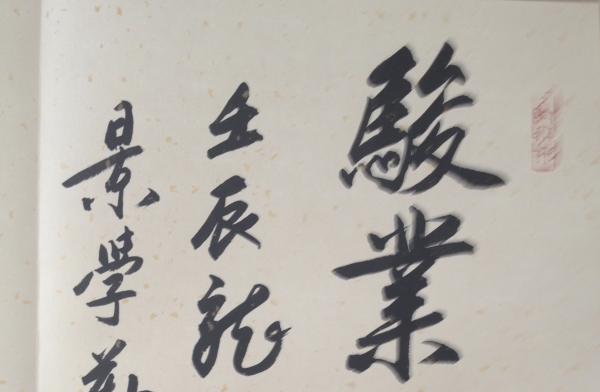 駿業
壬辰龍
景學